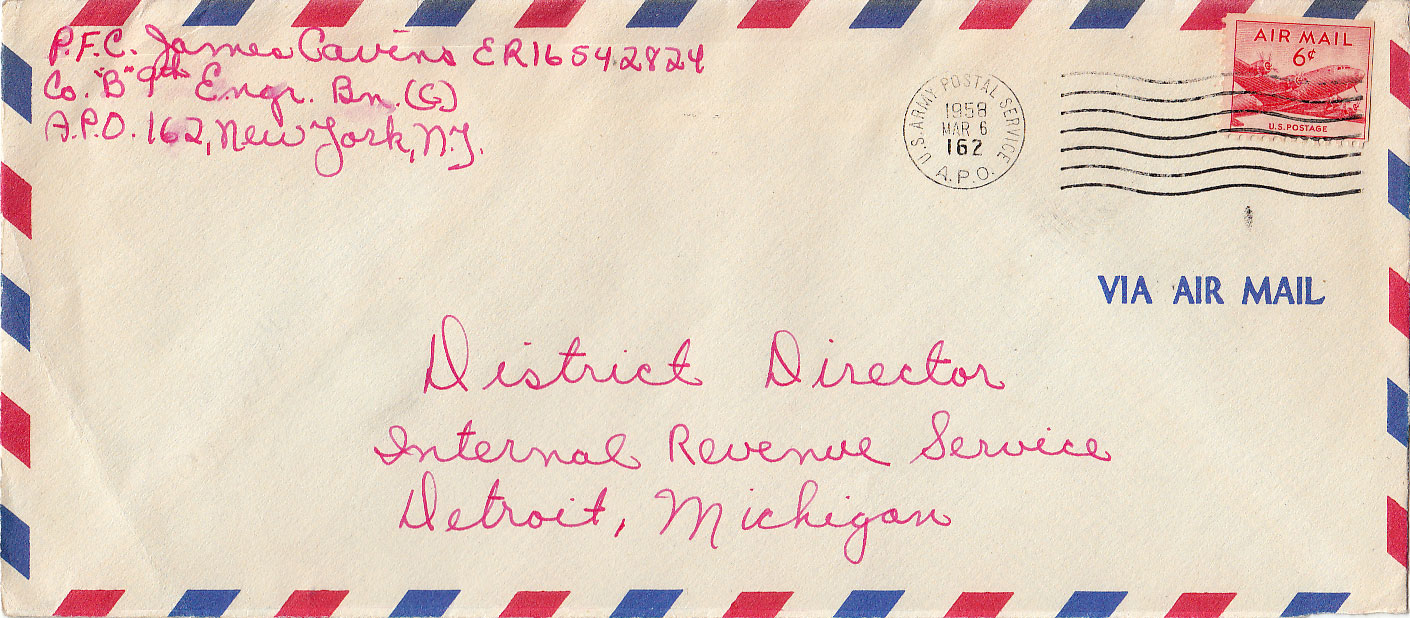 P.F.C. James Cavins ER16542824
Co. "B" 9th Engr. Bn. (C)
A.P.O. 162, New York, N.Y.
U.S. ARMY POSTAL SERVICE
1958
MAR 6
162
A.P.O.
AIR MAIL
6¢
U.S. POSTAGE
VIA AIR MAIL
District Director
Internal Revenue Service
Detroit, Michigan